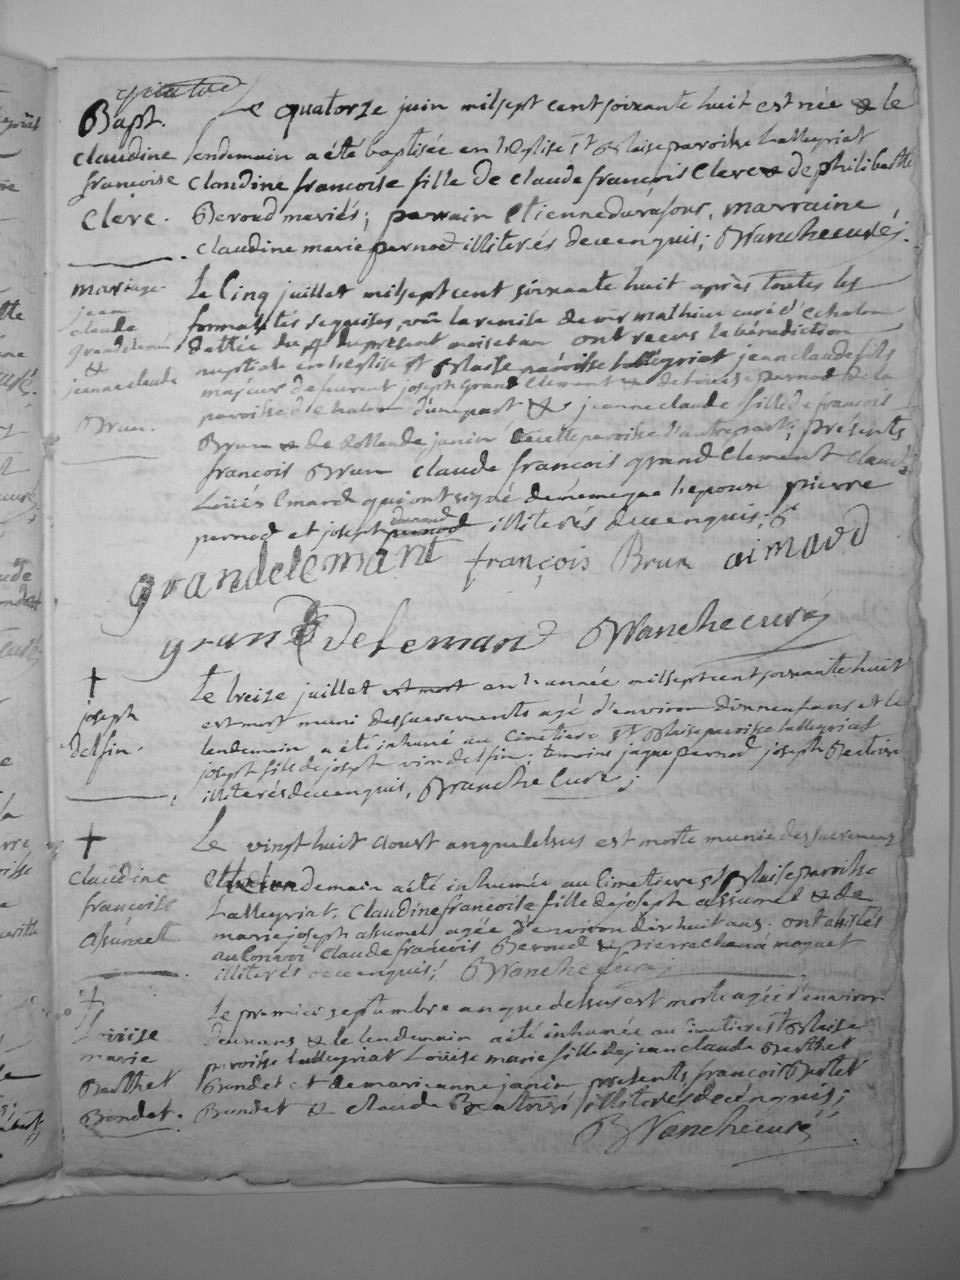 Bapt. Le quatorze juin mil sept cent soixante huit est née & le
claudine lendemain a été baptisée en l'Eglise St Blaise paroisse Lalleyriat
francoise Claudine francoise fille de claude francois Clerc & de philiberte
Clerc. Beroud mariés; parrain Etienne durafour, marraine
claudine marie pernod illiterés de ce enquis; Blanche curé.
mariage Le Cinq juillet mil sept cent soixante huit après toutes les
jean claude formalités requises, vû la remise de mr mathieu curé d'echalon
grandclement dattée du 4 du present mois et an ont receus la bénediction
& nuptiale en l'eglise St Blaise paroisse Lalleyriat jean claude fils
jeanne claude majeur de furent joseph grand Clement & de Louise pernod de la
Brun. paroisse d'echalon d'une part & jeanne claude fille de francois
Brun & de Rollande janin de cette paroisse d'autre part; présents
francois Brun claude francois grand Clement claude
Loüis Emard qui ont signé de meme que l'epoux pierre
pernod et joseph durand illiterés de ce enquis;
grandclemant françois Brun aimard
grand deleman Blanche curé
† Le treize juillet est mort an l'année mil sept cent soixante huit
joseph est mort muni des sacrements agé d'environ ans et le
delfin. lendemain a été inhumé au Cimetiere St Blaise paroisse Lalleyriat
joseph fils de joseph delfin; temoins jaque pernod joseph
illiterés de ce enquis, Blanche Curé;
† Le vingt huit aoust an que dessus est morte munie des sacremens
claudine et le lendemain a été inhumée au Cimetiere St Blaise paroisse
francoise Lalleyriat, Claudine francoise fille de joseph assumel & de
assumel marie joseph assumel agée d'environ dix huit ans. ont assistés
au convoi claude francois Beroud & pierre moquet
illiterés de ce enquis; Blanche Curé;
† Le premier septembre an que dessus est morte agée d'environ
Loüise deux ans & le lendemain a été inhumée au cimetiere St Blaise
marie paroisse Lalleyriat Loüise marie fille de jean claude Berthet
Berthet Bondet et de marianne janin presents francois Bertet
Bondet. Bondet & claude illiterés de ce enquis;
Blanche curé